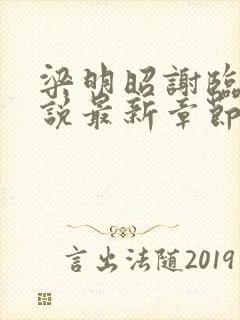 梁明昭謝臨
說最新章節
言出法随2019